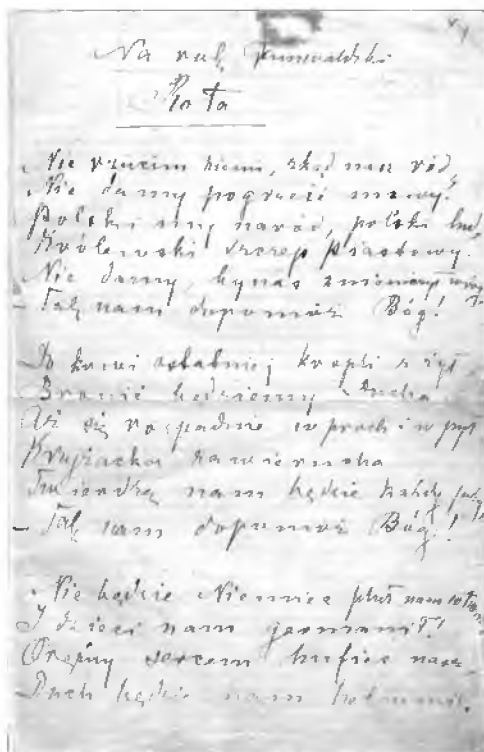 Na rok Grunwaldzki
Rota
Nie rzucim ziemi, skąd nasz ród,
Nie damy pogrześć mowy!
Polski my naród, polski lud,
Królewski szczep piastowy.
Nie damy, by nas zniemczył wróg
– Tak nam dopomóż Bóg!
Do krwi ostatniej kropli z żył
Bronić będziemy Ducha
Aż się rozpadnie w proch i w pył
Krzyżacka zawierucha
Twierdzą nam będzie każdy próg
– Tak nam dopomóż Bóg!
Nie będzie Niemiec pluł nam w twarz
I dzieci nam germanił!
Orężny hufiec nasz
Duch będzie nam